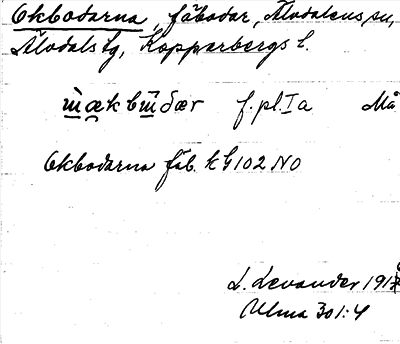 Okbodarna, fäbodar, Älvdalens sn,
Älvdals tg, Kopparbergs l.
f. pl. I a Må
Okbodarna fäb. k G 102 NO
L. Levander 191
Ulma 301:4